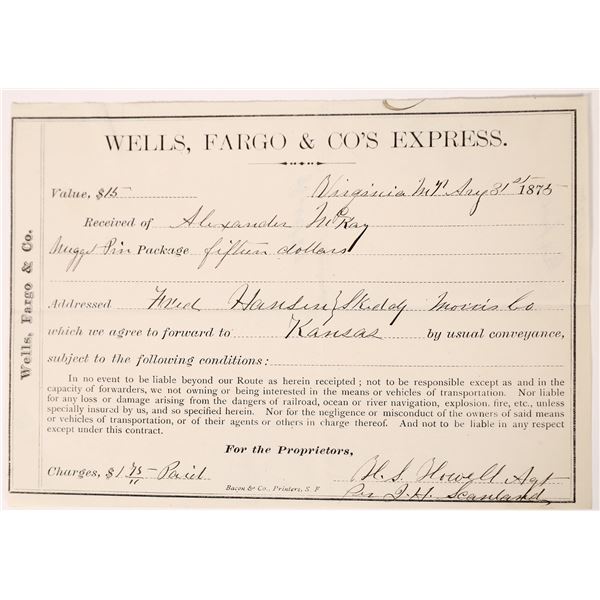 WELLS, FARGO & CO'S EXPRESS.
Wells, Fargo & Co.
Value, $15 Virginia Aug 31st 1875
Received of Alexander McKay
Nugget Pin Package fifteen dollars
Addressed Fred Hansen } Skiddy Morris Co
which we agree to forward to Kansas by usual conveyance,
subject to the following conditions:
In no event to be liable beyond our Route as herein receipted; not to be responsible except as and in the
capacity of forwarders, we not owning or being interested in the means or vehicles of transportation. Nor liable
for any loss or damage arising from the dangers of railroad, ocean or river navigation, explosion. fire, etc., unless
specially insured by us, and so specified herein. Nor for the negligence or misconduct of the owners of said means
or vehicles of transportation, or of their agents or others in charge thereof. And not to be liable in any respect
except under this contract.
For the Proprietors,
Charges, $1 75 Paid H. S. Howell Agt
Bacon & Co., Printers, S. F
Per J. H. Scanland